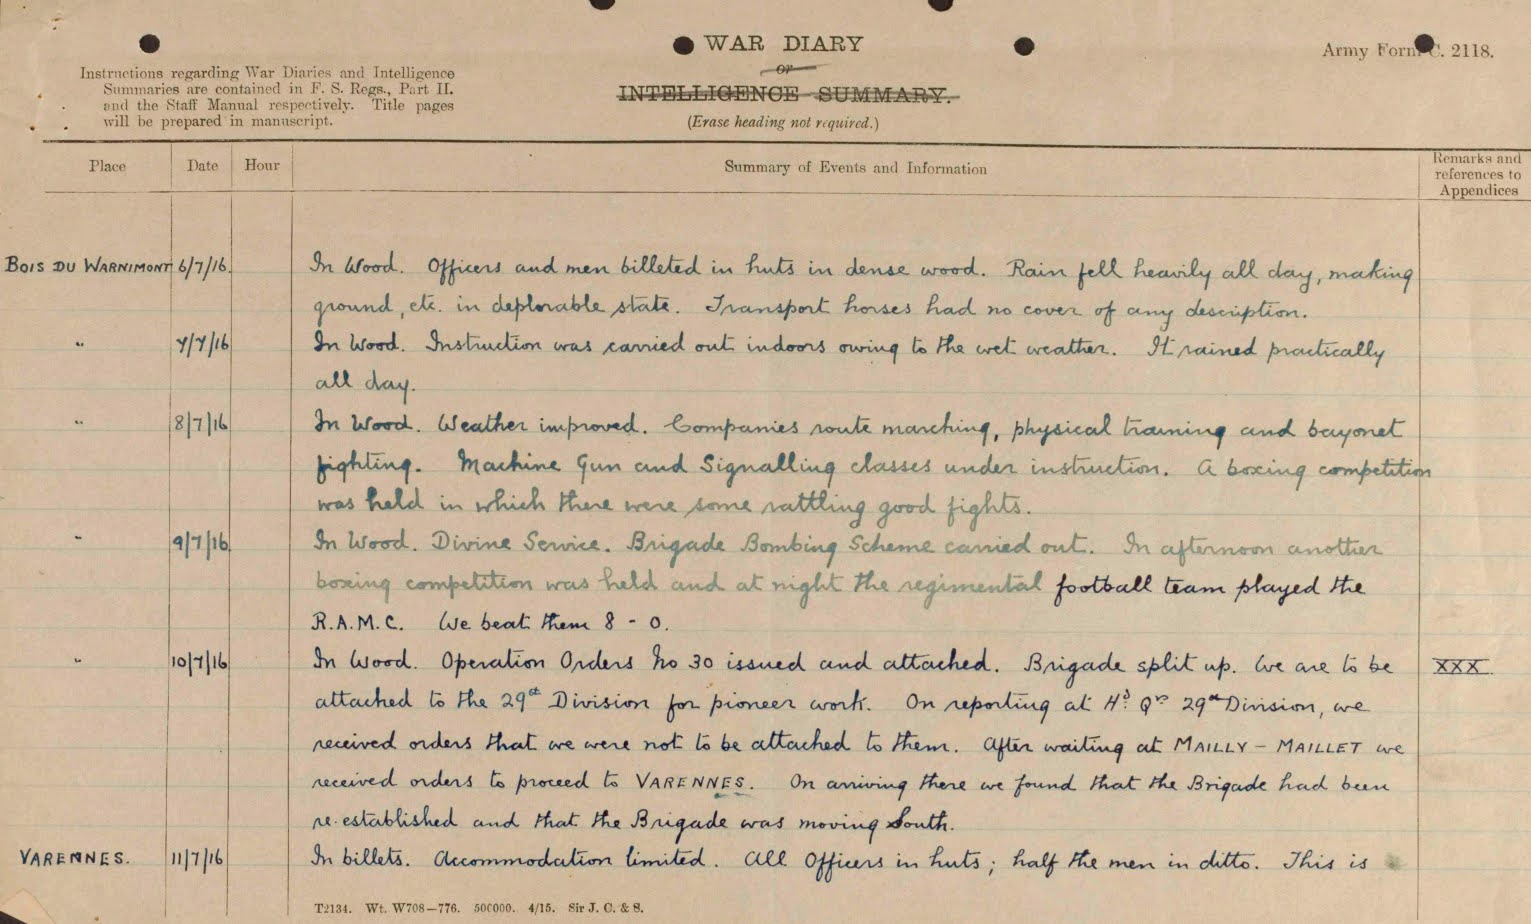 WAR DIARY
or
INTELLIGENCE SUMMARY.
(Erase heading not required.)
Army Form C. 2118.
Instructions regarding War Diaries and Intelligence
Summaries are contained in F. S. Regs., Part II.
and the Staff Manual respectively. Title pages
will be prepared in manuscript.
Place Date Hour Summary of Events and Information Remarks and
references to
Appendices
BOIS DU WARNIMONT 6/7/16. In Wood. Officers and men billeted in huts in dense wood. Rain fell heavily all day, making
ground, etc. in deplorable state. Transport horses had no cover of any description.
" 7/7/16 In Wood. Instruction was carried out indoors owing to the wet weather. It rained practically
all day.
" 8/7/16 In Wood. Weather improved. Companies route marching, physical training and bayonet
fighting. Machine Gun and Signalling classes under instruction. A boxing competition
was held in which there were some rattling good fights.
" 9/7/16 In Wood. Divine Service. Brigade Bombing Scheme carried out. In afternoon another
boxing competition was held and at night the regimental football team played the
R.A.M.C. We beat them 8 - 0.
" 10/7/16 In Wood. Operation Orders No 30 issued and attached. Brigade split up. We are to be XXX.
attached to the 29th Division for pioneer work. On reporting at Hd Qrs 29th Division, we
received orders that we were not to be attached to them. After waiting at MAILLY - MAILLET we
received orders to proceed to VARENNES. On arriving there we found that the Brigade had been
re-established and that the Brigade was moving South.
VARENNES. 11/7/16 In billets. Accommodation limited. All Officers in huts; half the men in ditto. This is
T2134. Wt. W708—776. 500000. 4/15. Sir J. C. & S.